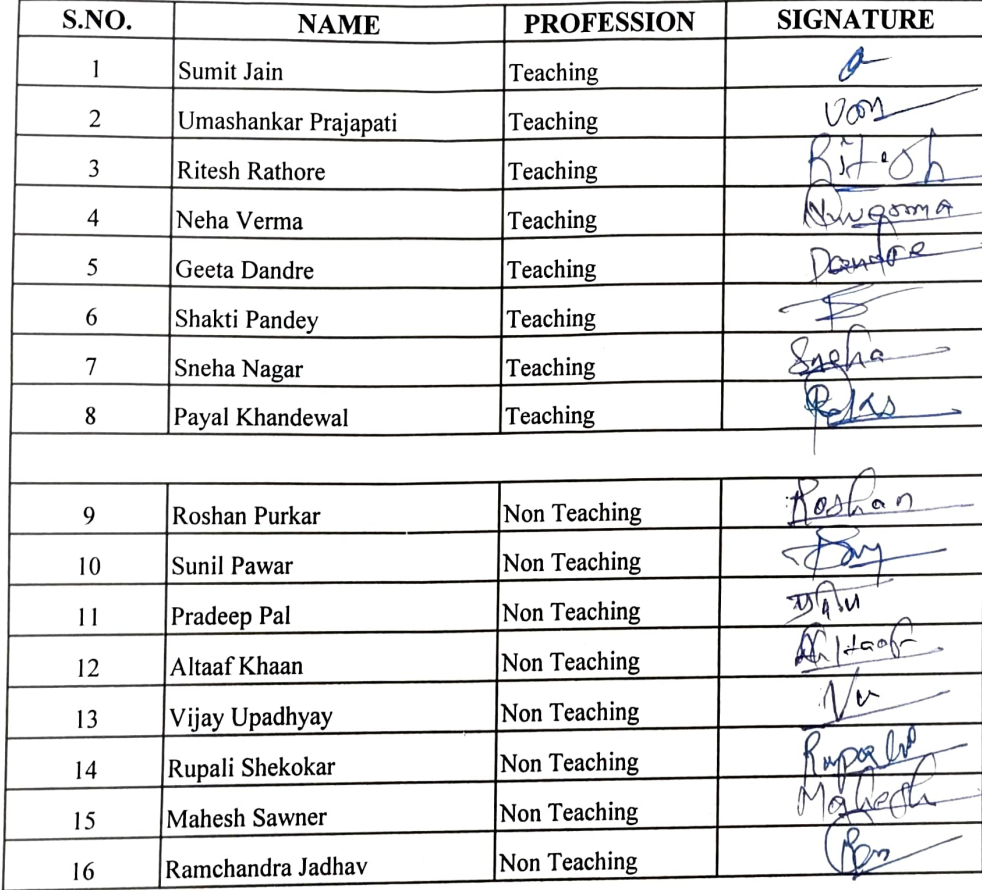 S.NO. NAME PROFESSION SIGNATURE
1 Sumit Jain Teaching
2 Umashankar Prajapati Teaching
3 Ritesh Rathore Teaching Ritesh
4 Neha Verma Teaching
5 Geeta Dandre Teaching Dandre
6 Shakti Pandey Teaching
7 Sneha Nagar Teaching Sneha
8 Payal Khandewal Teaching
9 Roshan Purkar Non Teaching Roshan
10 Sunil Pawar Non Teaching
11 Pradeep Pal Non Teaching
12 Altaaf Khaan Non Teaching Altaaf
13 Vijay Upadhyay Non Teaching
14 Rupali Shekokar Non Teaching Rupali
15 Mahesh Sawner Non Teaching Mahesh
16 Ramchandra Jadhav Non Teaching